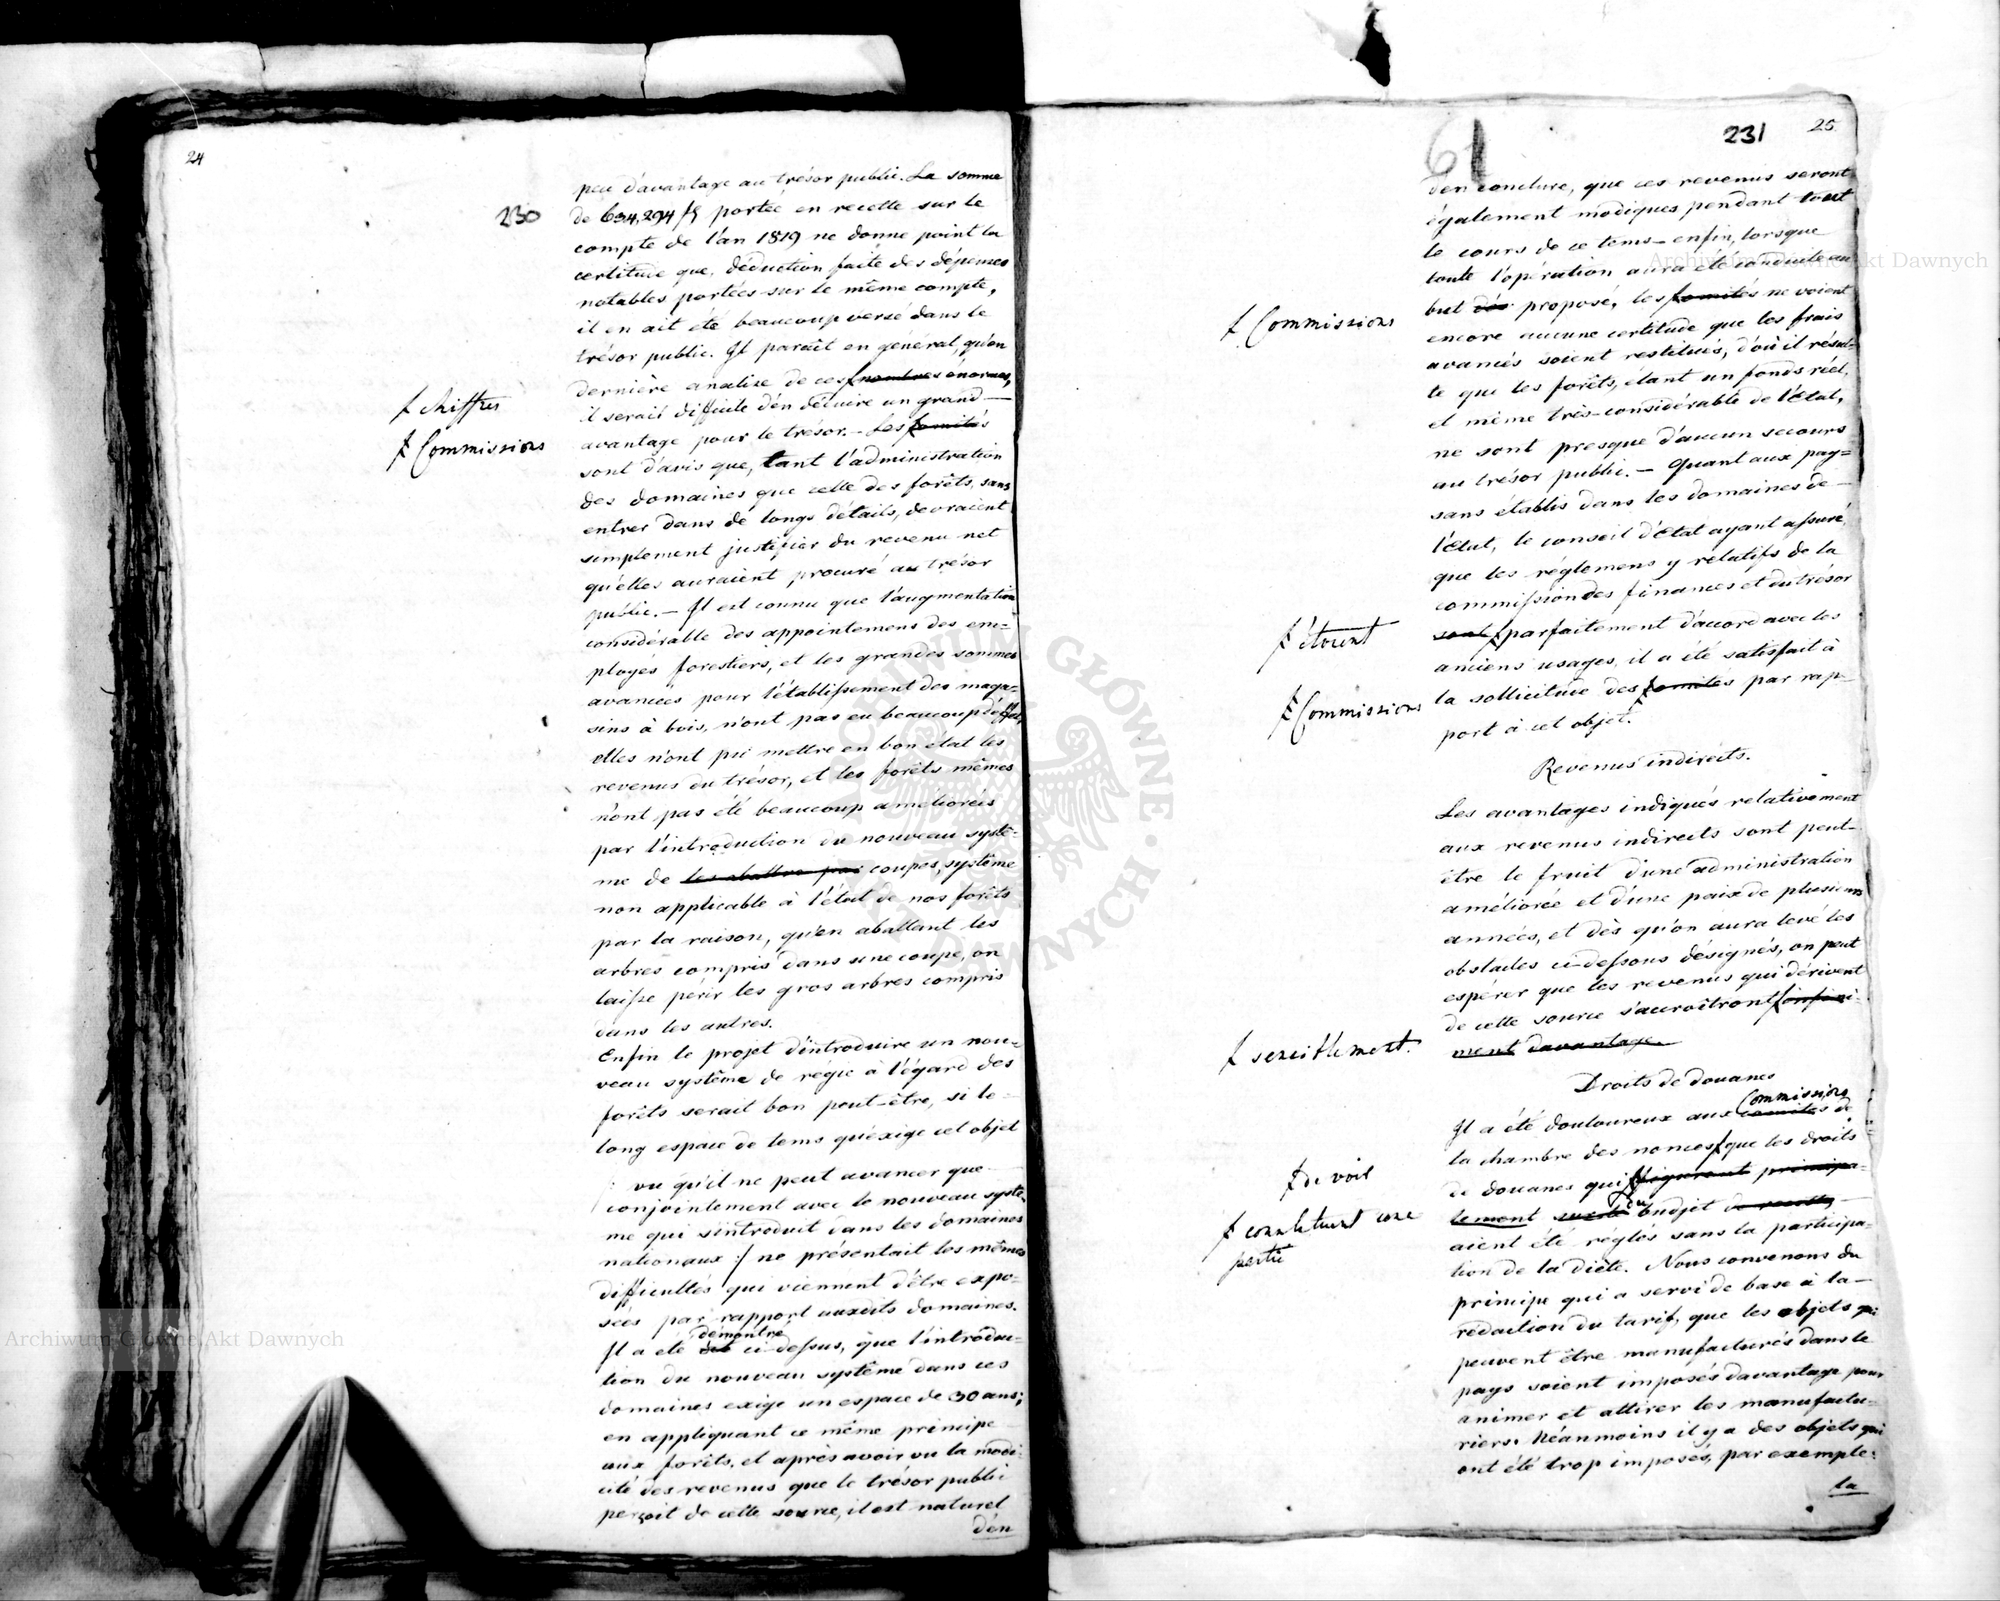 24
230
peu d'avantage au trésor public. La somme
de 634,294 fl portée en recette sur le
compte de l'an 1819 ne donne point la
certitude que, déduction faite des dépenses
notables portées sur le même compte,
il en ait été beaucoup versé dans le
trésor public. Il paraît en général, qu'en
dernière analise de ces nombres énormes,
il serait difficile d'en déduire un grand
avantage pour le trésor. – Les comités
sont d'avis que, tant l'administration
des domaines que celle des forêts, sans
entrer dans de longs détails, devraient
simplement justifier du revenu net
qu'elles auraient procuré au trésor
public. – Il est connu que l'augmentation
considérable des appointemens des em=
ployés forestiers, et les grandes sommes
avancées pour l'établissement des maga=
sins à bois, n'ont pas eu beaucoup d'effet,
elles n'ont pu mettre en bon état les
revenus du trésor, et les forêts mêmes
n'ont pas été beaucoup améliorées
par l'introduction du nouveau systê=
me de les abattre par coupes, systême
non applicable à l'état de nos forêts
par la raison, qu'en abattant les
arbres compris dans une coupe, on
laisse périr les gros arbres compris
dans les autres.
Enfin le projet d'introduire un nou=
veau systême de régie à l'égard des
forêts serait bon peut-être, si le
long espace de tems qu'exige cet objet
/: vu qu'il ne peut avancer que
conjointement avec le nouveau systê=
me qui s'introduit dans les domaines
nationaux :/ ne présentait les mêmes
difficultés qui viennent d'être expo=
sées par rapport auxdits domaines.
démontré
Il a été dit ci-dessus, que l'introduc=
tion du nouveau systême dans ces
domaines exige un espace de 30 ans;
en appliquant ce même principe
aux forêts, et après avoir vu la modi=
cité des revenus que le trésor public
perçoit de cette source, il est naturel
d'en
ƒ chiffres
ƒ Commissions
61
231
25.
d'en conclure, que ces revenus seront
également modiques pendant tout
le cours de ce tems – enfin, lorsque
toute l'opération aura été conduite au
but proposé, les comités ne voient
encore aucune certitude que les frais
avancés soient restitués, d'où il résul=
te que les forêts, étant un fonds réel,
et même très-considérable de l'Etat,
ne sont presque d'aucun secours
au trésor public. – Quant aux pay=
sans établis dans les domaines de
l'Etat, le conseil d'Etat ayant assuré,
que les réglemens y relatifs de la
commission des finances et du trésor
sont parfaitement d'accord avec les
anciens usages, il a été satisfait à
la sollicitude des comités par rap=
port à cet objet.
ƒ Commissions
ƒ étoient
ƒ Commissions
Revenus indirects.
Les avantages indiqués relativement
aux revenus indirects sont peut-
être le fruit d'une administration
améliorée et d'une paix de plusieurs
années, et dès qu'on aura levé les
obstacles ci-dessous désignés, on peut
espérer que les revenus qui dérivent
de cette source s'accroîtront infini=
ment davantage.
ƒ sensiblement.
Droits de douanes
Commissions
Il a été douloureux aux comités de
la chambre des nonces que les droits
de douanes qui figurent principa=
lement sur le du budjet de recette,
aient été réglés sans la participa=
tion de la diète. Nous convenons du
principe qui a servi de base à la
rédaction du tarif, que les objets qui
peuvent être manufacturés dans le
pays soient imposés davantage pour
animer et attirer les manufactu=
riers. Néanmoins il y a des objets qui
ont été trop imposés, par exemple:
la
ƒ de voir
ƒ constituent une
partie
Archiwum Główne Akt Dawnych
Archiwum Główne Akt Dawnych
ARCHIWUM GŁÓWNE AKT DAWNYCH